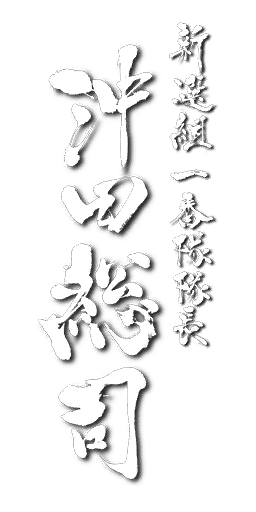 新選組 一番隊隊長
沖田総司